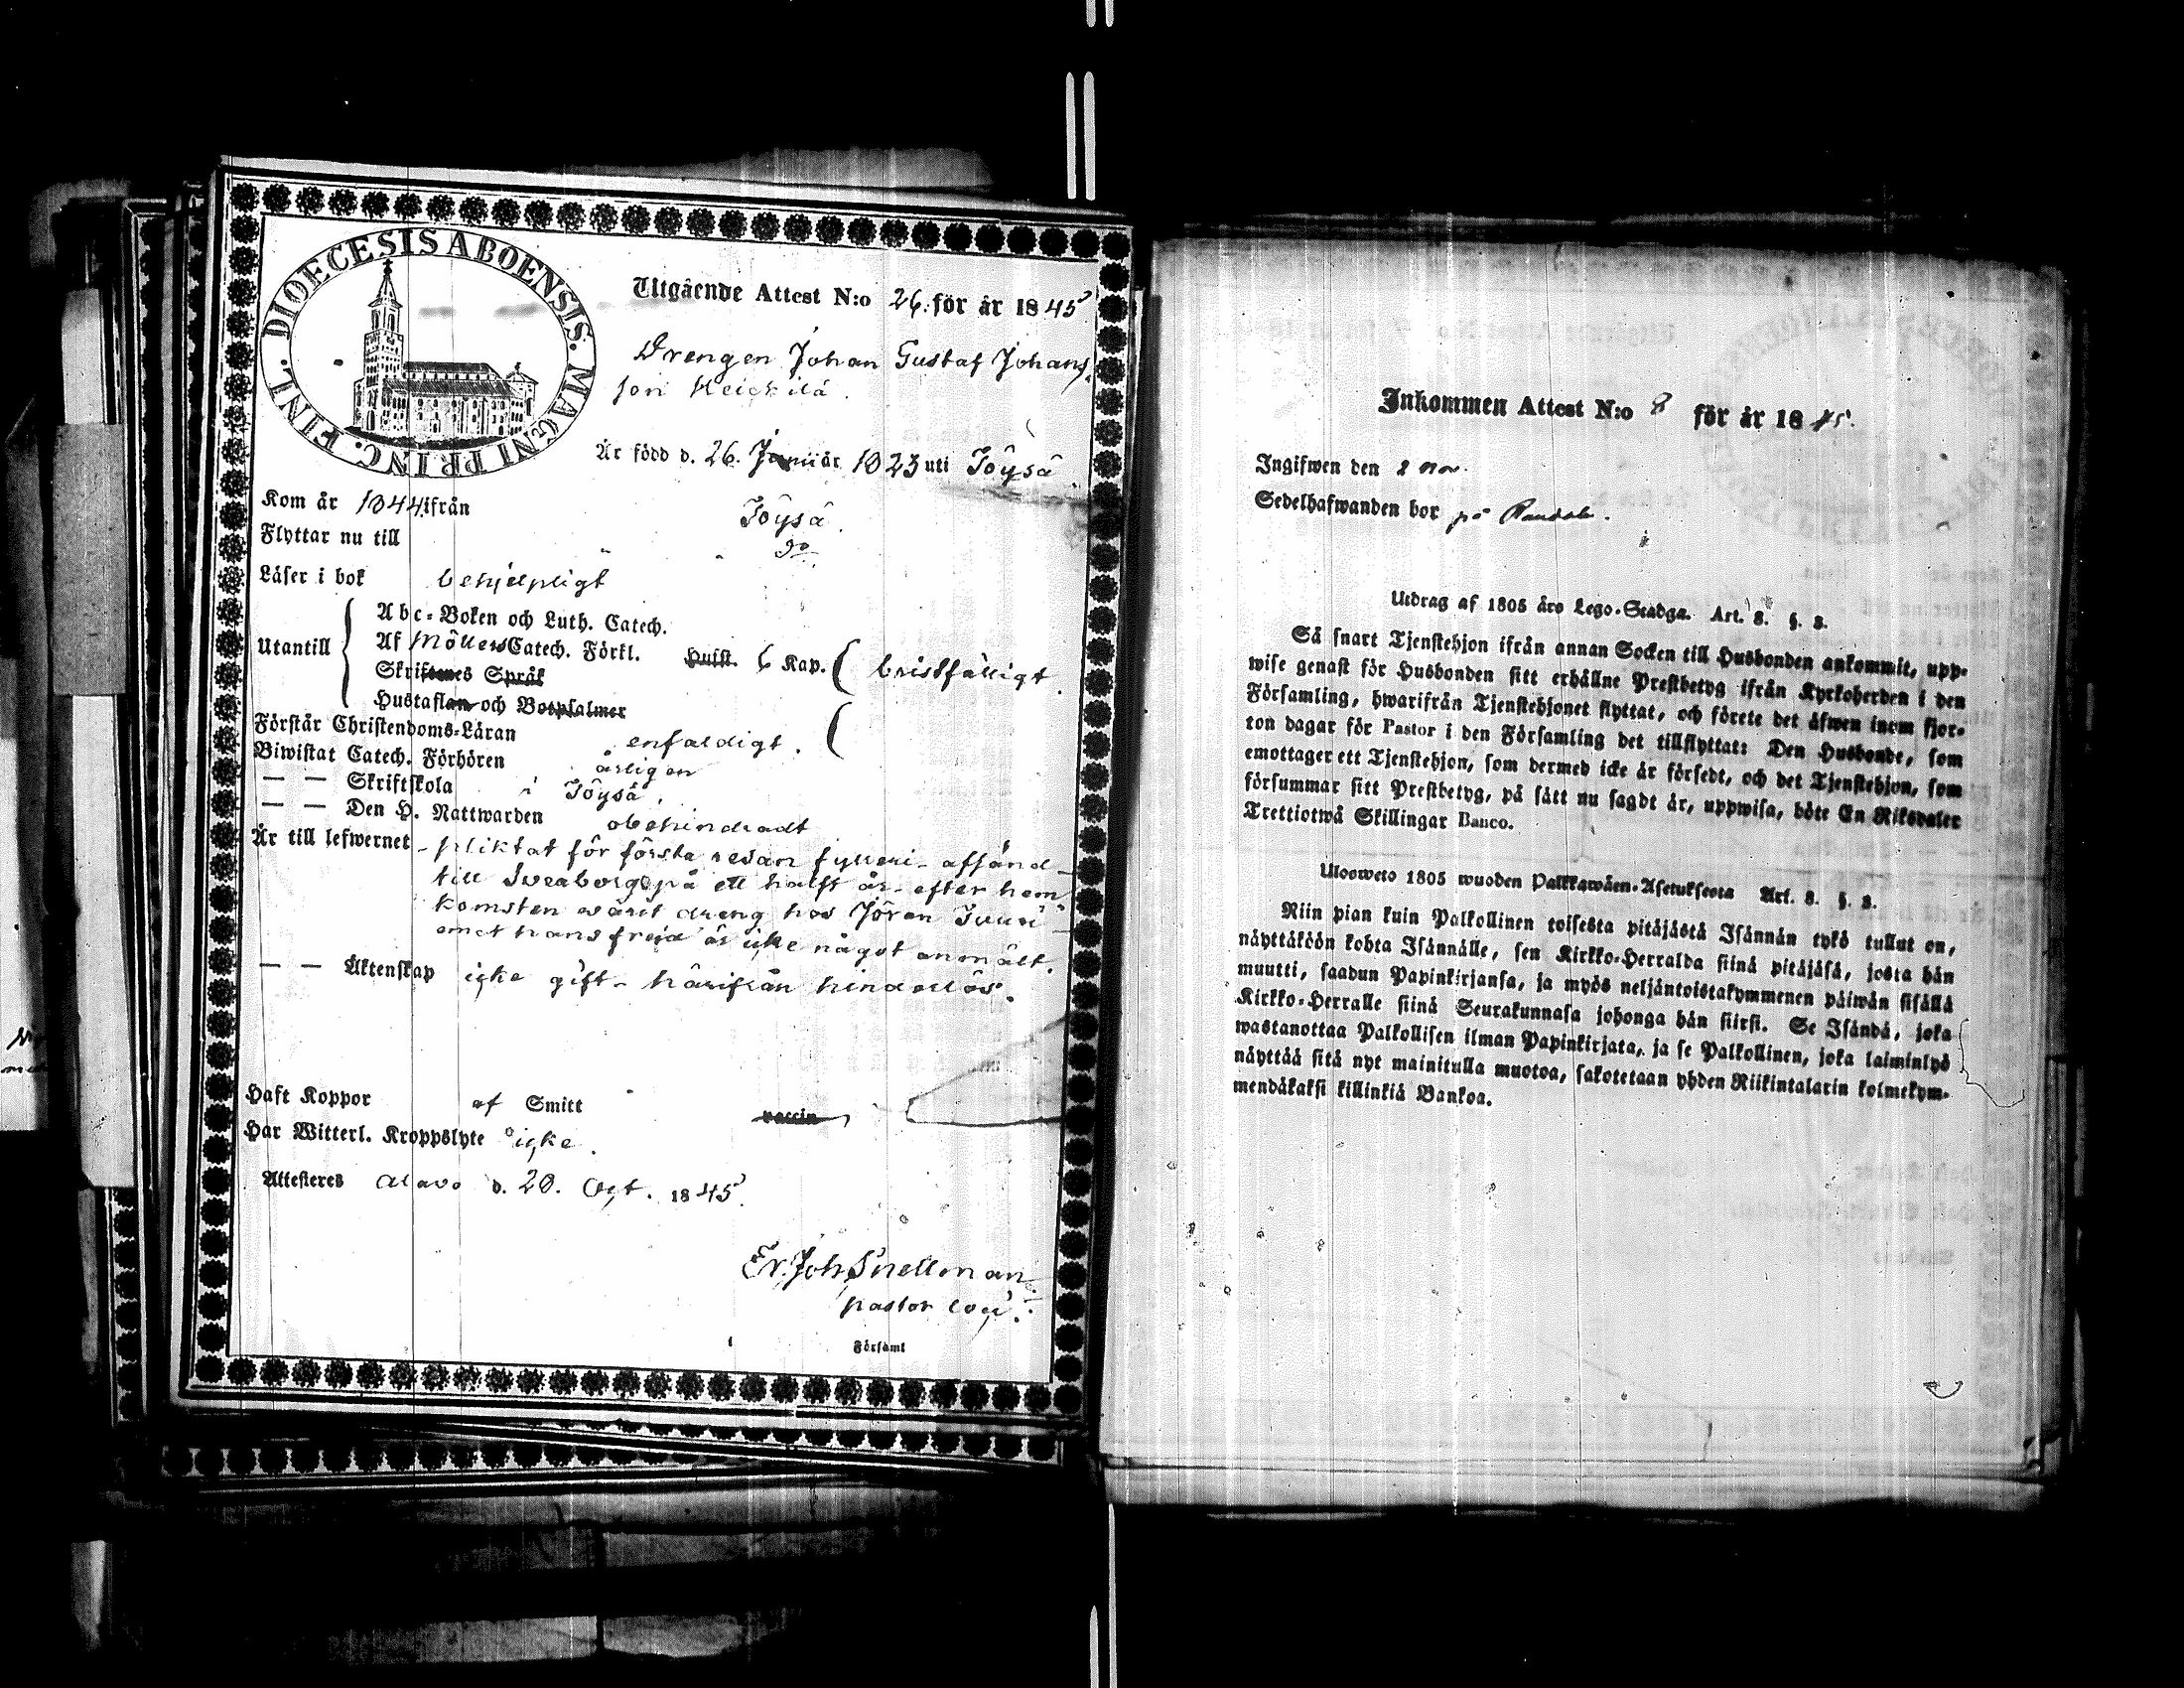 DIOECESIS ABOENSIS. MAGNI PRINC. FINL.
Utgående Attest N:o 26. för år 1845
Drengen Johan Gustaf Johans
son Heickilä.
Är född d. 26. Januiär 1823 uti Töysä
Kom år 1844 ifrån Töysä.
Flyttar nu till do
Läser i bok behjelpligt
Utantill
Abc-Boken och Luth. Catech.
Af Möllers Catech. Förkl. Hufst. 6 Kap. ( bristfälligt.
Skriftenes Språk
Hustaflan och Botpsalmer
Förstår Christendoms-Läran enfaldigt. (
Biwistat Catech. Förhören årligen
— — Skriftskola i Töysä.
— — Den H. Nattwarden obehindradt
Är till lefwernet - pliktat för första resan fylleri - affänd
till Sveaborg på ett halft år - efter hem
komsten varit dreng hos Jöran
omet hans frejd är icke något anmält.
— — Äktenskap icke gift - härifrån hinderlös.
Haft Koppor af Smitt vaccin
Har Witterl. Kroppslyte icke.
Attesteres Alavo d. 20. Oct. 1845.
Er. Joh. Snellman
pastor
Församl
Inkommen Attest N:o 8 för år 1845.
Ingifwen den 2 nov.
Sedelhafwanden bor på
Utdrag af 1805 års Lego-Stadga. Art. 8. §. 8.
Så snart Tjenstehjon ifrån annan Socken till Husbonden ankommit, upp-
wise genast för Husbonden sitt erhållne Prestbetyg ifrån Kyrkoherden i den
Församling, hwarifrån Tjenstehjonet flyttat, och förete det äfwen inom fjor-
ton dagar för Pastor i den Församling det tillflyttat: Den Husbonde, som
emottager ett Tjenstehjon, som dermed icke är försedt, och det Tjenstehjon, som
försummar sitt Prestbetyg, på sätt nu sagdt är, uppwisa, böte En Riksdaler
Trettiotwå Skillingar Banco.
Uloosweto 1805 wuoden Palkkawäen-Asetuksesta Art. 8. §. 8.
Niin pian kuin Palkollinen toisesta pitäjästä Isännän tykö tullut on,
näyttäköön kohta Isännälle, sen Kirkko-Herralda siinä pitäjäsä, josta hän
muutti, saadun Papinkirjansa, ja myös neljäntoistakymmenen päiwän sisällä
Kirkko-Herralle siinä Seurakunnasa johonga hän siirsi. Se Isändä, joka
wastanottaa Palkollisen ilman Papinkirjata, ja se Palkollinen, joka laiminlyö
näyttää sitä nyt mainitulla muotoa, sakotetaan yhden Riikintalarin kolmekym-
mendäkaksi killinkiä Bankoa.